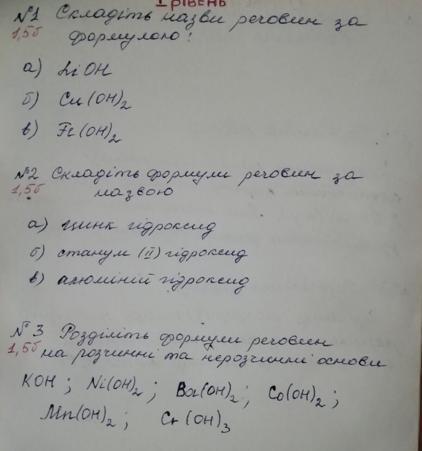 I РІВЕНЬ
№1 Складіть назви речовин за
1,5б формулою:
а) LiOH
б) Cu(OH)₂
в) Fe(OH)₂
№2 Складіть формули речовин за
1,5б назвою
а) цинк гідроксид
б) станум (II) гідроксид
в) алюміній гідроксид
№3 Розділіть формули речовин
1,5б на розчинні та нерозчинні основи
KOH; Ni(OH)₂; Ba(OH)₂; Co(OH)₂;
Mn(OH)₂; Cr(OH)₃